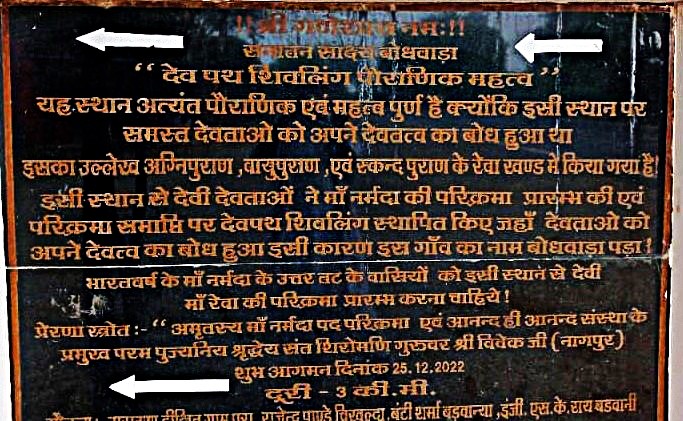 !!श्री गणेशाय नमः!!
सनातन साक्ष्य बोधवाड़ा
“ देव पथ शिवलिंग पौराणिक महत्व ”
यह स्थान अत्यंत पौराणिक एवं महत्व पुर्ण है क्योंकि इसी स्थान पर
समस्त देवताओ को अपने देवतत्व का बोध हुआ था
इसका उल्लेख अग्निपुराण ,वायुपुराण ,एवं स्कन्द पुराण के रेवा खण्ड में किया गया है!
इसी स्थान से देवी देवताओं ने माँ नर्मदा की परिक्रमा प्रारम्भ की एवं
परिक्रमा समाप्ति पर देवपथ शिवलिंग स्थापित किए जहाँ देवताओ को
अपने देवत्व का बोध हुआ इसी कारण इस गाँव का नाम बोधवाडा पड़ा !
भारतवर्ष के माँ नर्मदा के उत्तर तट के वासियों को इसी स्थान से देवी
माँ रेवा की परिक्रमा प्रारम्भ करना चाहिये !
प्रेरणा स्त्रोत :- “ अमृतस्य माँ नर्मदा पद परिक्रमा एवं आनन्द ही आनन्द संस्था के
प्रमुख परम पुज्यनिय श्रृद्धेय संत शिरोमणि गुरूवर श्री विवेक जी (नागपुर)
शुभ आगमन दिनांक 25.12.2022
दूरी - 3 की.मी.
राजेन्द्र पाण्डे चिखल्दा, बंटी शर्मा बडवान्या ,इंजी. एस.के. राय बडवानी